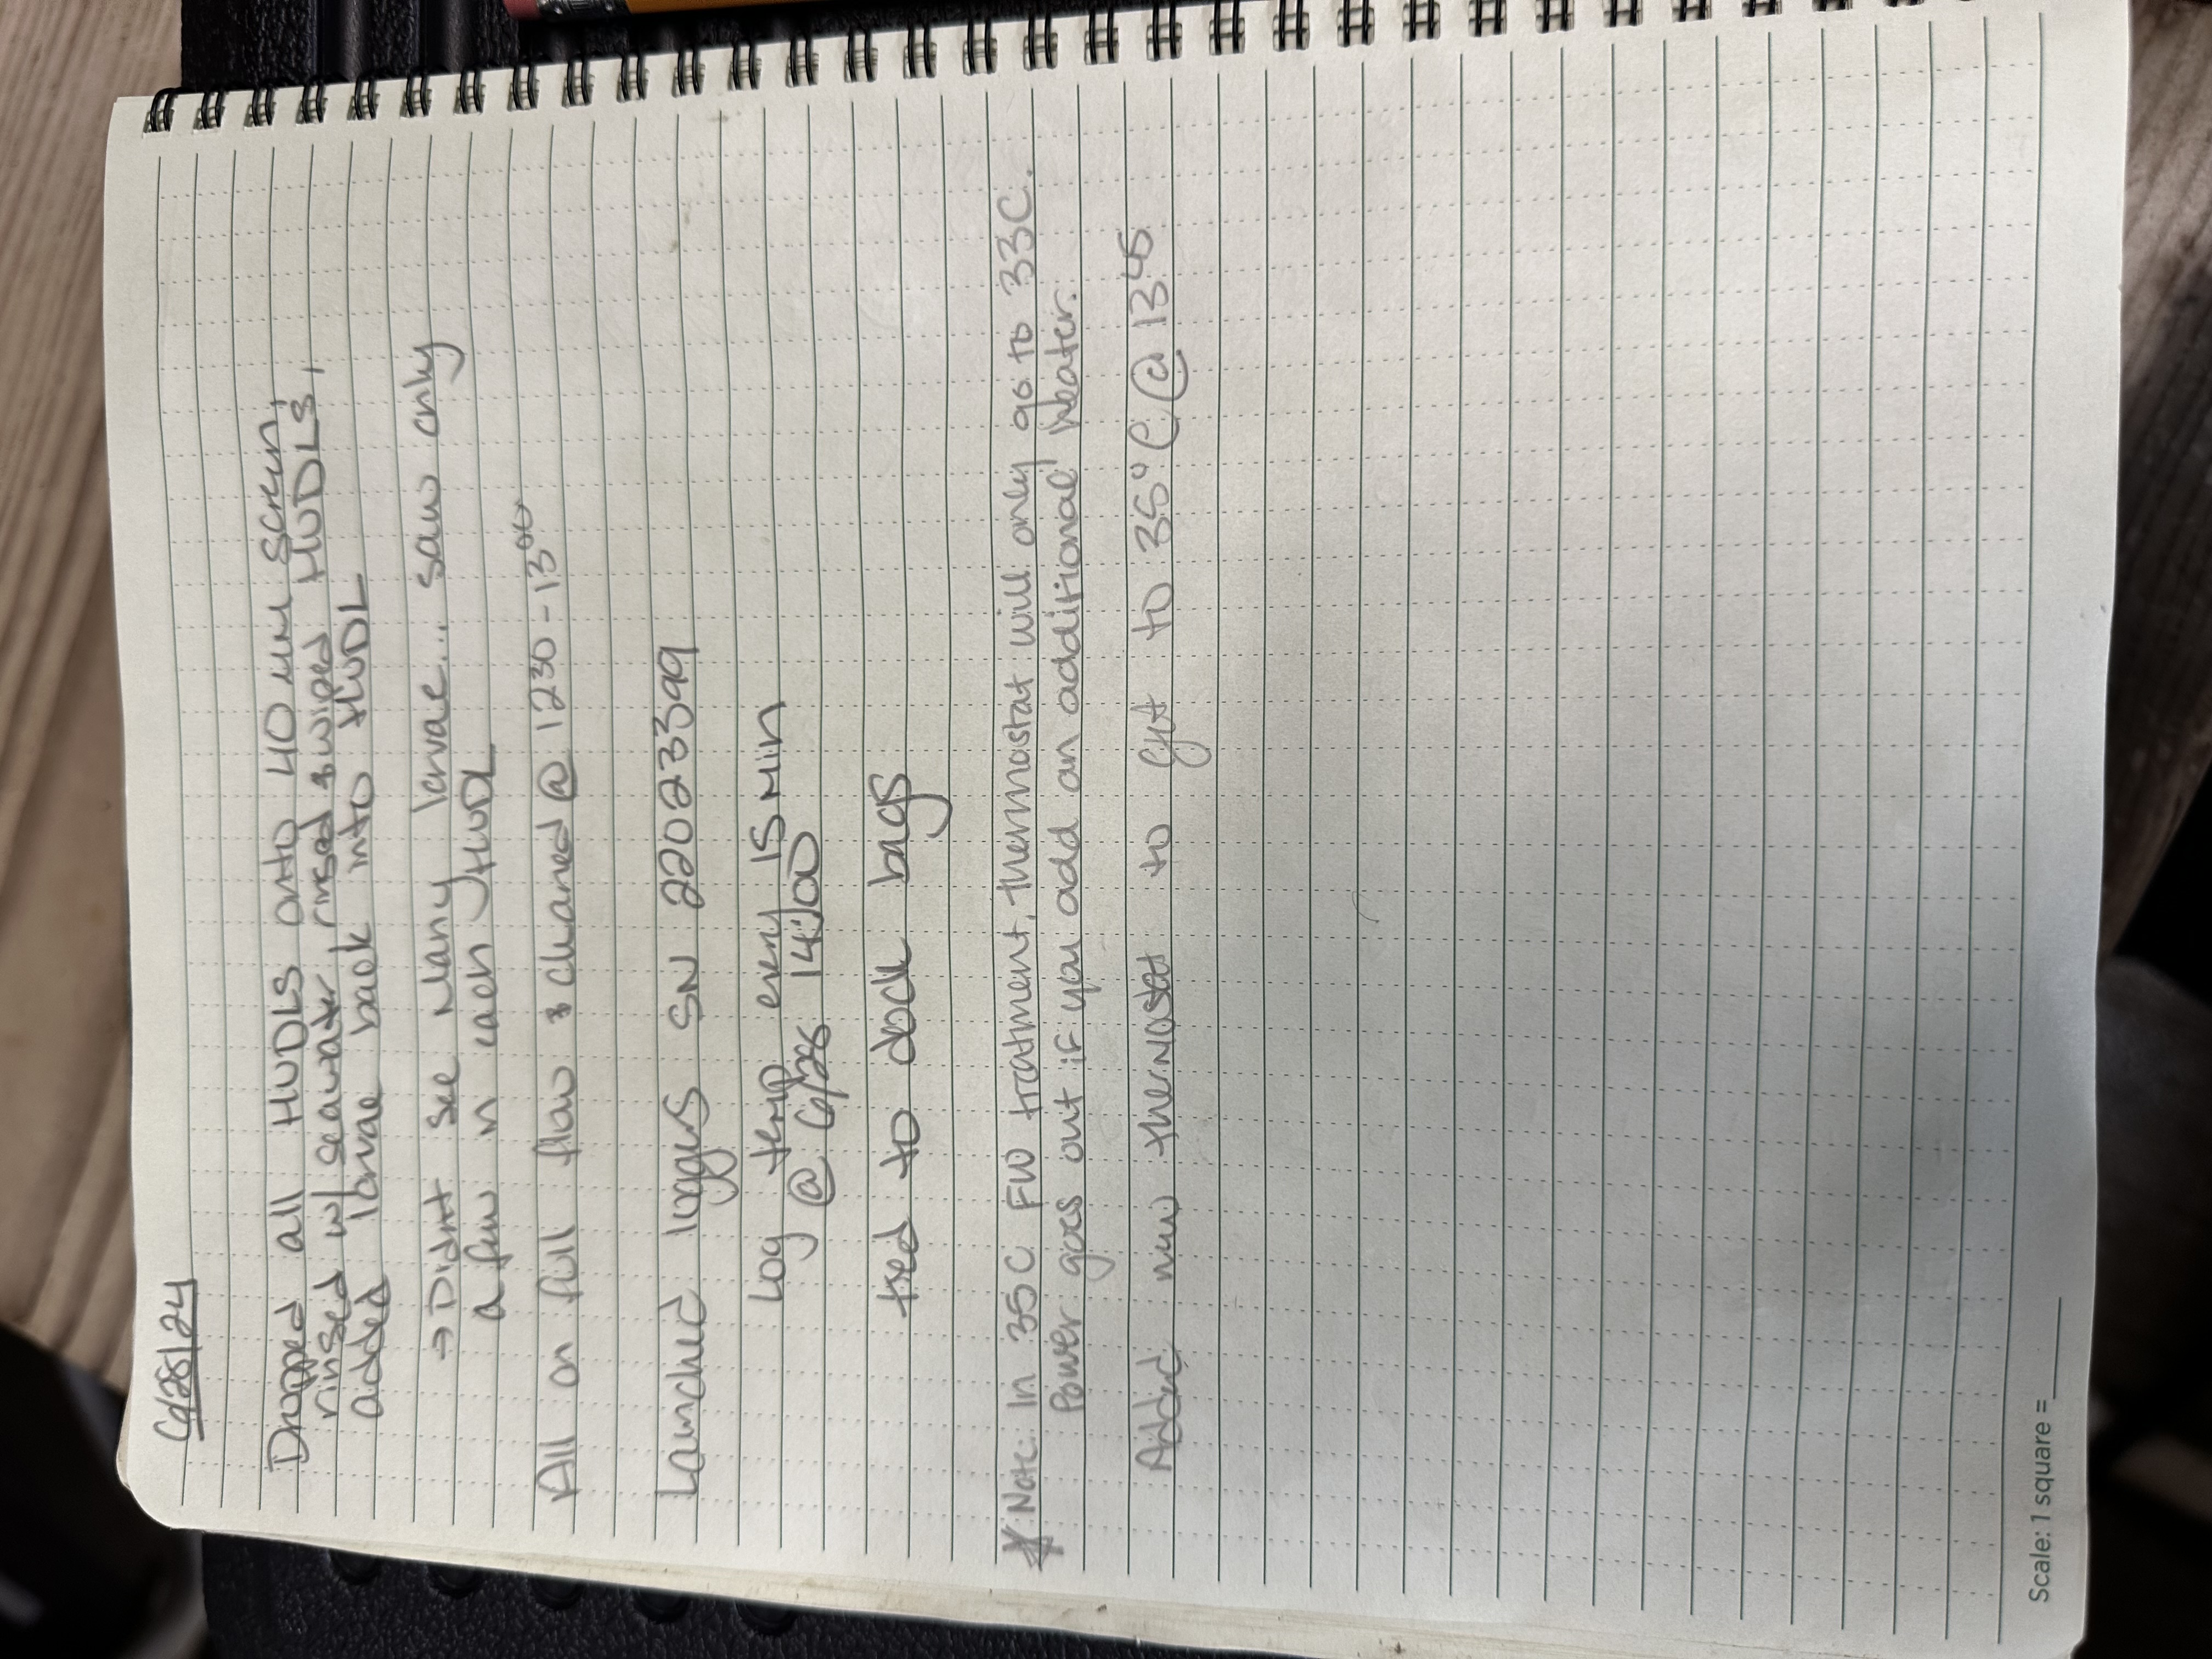 6/28/24
Dropped all HUDLS onto 40 µm screen,
rinsed w/ seawater, rinsed & wiped HUDLS,
added larvae back into HUDL
→ Didnt see Many larvae... saw only
a few in each HUDL
All on full flow & cleaned @ 1230-13⁰⁰
Launched loggers SN 22023399
Log temp every 15 Min
@ 6/28 14:00
tied to dock bags
* Note: In 35C FW treatment, thermostat will only go to 33C.
Power goes out if you add an additional heater.
Added new thermostat to get to 35°C @ 13⁴⁵
Scale: 1 square =